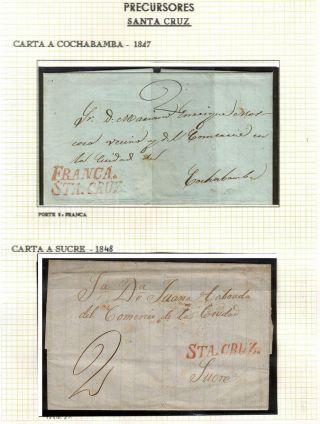 PRECURSORES
SANTA CRUZ
CARTA A COCHABAMBA - 1847
2
Sr. D. Mariano Enrique
vecino y del Comercio en
la Ciudad de
Cochabamba
FRANCA.
STA. CRUZ.
PORTE 2: FRANCA
CARTA A SUCRE - 1848
Sa. Da. Juana Taborda
del Comercio de la Ciudad
2
STA. CRUZ.
Sucre